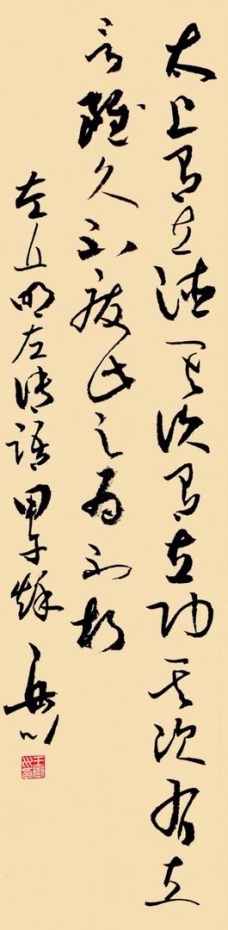 太上有立德其次有立功其次有立
言虽久不废此之为不朽
左丘明左传语甲午秋